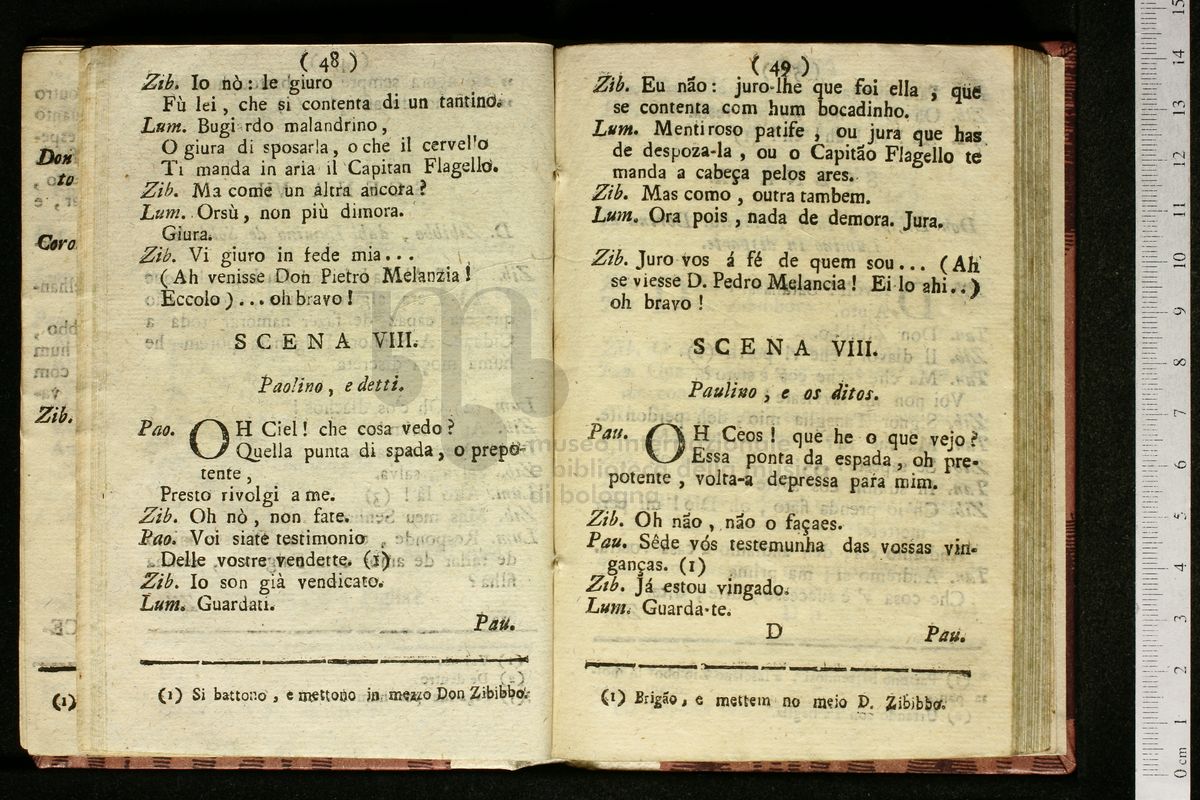 Don
to
Coro
Zib.
(1)
(48)
Zib. Io nò : le giuro
Fù lei, che si contenta di un tantino.
Lum. Bugi rdo malandrino,
O giura di sposarla, o che il cervel'o
Ti manda in aria il Capitan Flagello.
Zib. Ma come un altra ancora?
Lum. Orsù, non più dimora.
Giura.
Zib. Vi giuro in fede mia...
(Ah venisse Don Pietro Melanzia!
Eccolo)... oh bravo!
SCENA VIII.
Paolino, e detti.
Pao. OH Ciel! che cosa vedo?
Quella punta di spada, o prepo-
tente,
Presto rivolgi a me.
Zib. Oh nò, non fate.
Pao. Voi siate testimonio
Delle vostre vendette. (1)
Zib. Io son già vendicato.
Lum. Guardati.
Pau.
(1) Si battono, e mettono in mezzo Don Zibibbo.
(49)
Zib. Eu não: juro-lhe que foi ella, que
se contenta com hum bocadinho.
Lum. Mentiroso patife, ou jura que has
de despoza-la, ou o Capitão Flagello te
manda a cabeça pelos ares.
Zib. Mas como, outra tambem.
Lum. Ora pois, nada de demora. Jura.
Zib. Juro vos á fé de quem sou... (Ah
se viesse D. Pedro Melancia! Ei lo ahi..)
oh bravo!
SCENA VIII.
Paulino, e os ditos.
Pau. OH Ceos! que he o que vejo?
Essa ponta da espada, oh pre-
potente, volta-a depressa para mim.
Zib. Oh não, não o façaes.
Pau. Sêde vós testemunha das vossas vin-
ganças. (1)
Zib. Já estou vingado.
Lum. Guarda-te.
D Pau.
(1) Brigão, e mettem no meio D. Zibibbo.
museo internazionale
e biblioteca della musica
di bologna
0 cm 1 2 3 4 5 6 7 8 9 10 11 12 13 14 15